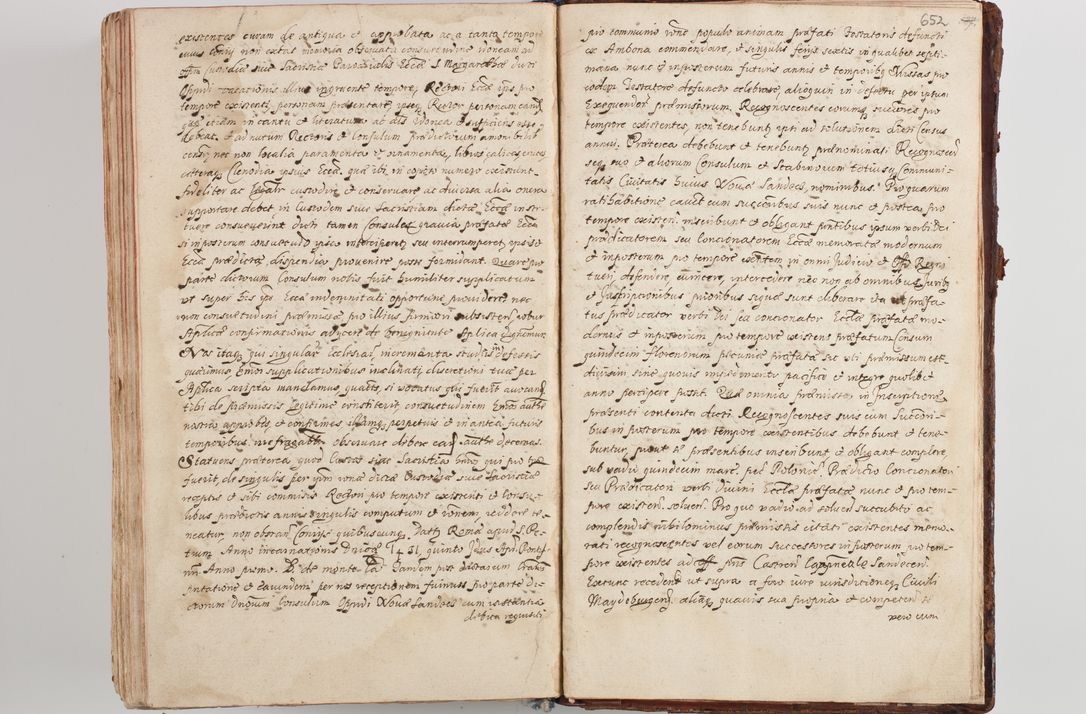 existentes curam de antiqua et approbata ac a tanta tempore
cuius non extat memoria observata consuetudine
Custodiæ sive Sacristiæ Parochialis Eccæ S. Margarethæ dicti
Opidi vacationis illius ingruente tempore, Rectori Eccæ ipso pro
tempore existenti, personam præsentare, ipseq Rector personam eand
quæ etiam in cantu et literatura ac alias idonea et sufficiens esse
debeat, et ad nutum Rectoris et Consulum prædictorum
non iocalia paramenta et ornamenta, libros calices cruces
Clenodia ipsius Eccæ, quæ ibi in copioso numero existunt
fideliter ac custodire et conservare ac diversa alia onera
supportare debet, in Custodem sive Sacristam dictæ Eccæ insti-
tuere consueverint dicti tamen Consules gravia præfatæ Eccæ
si in posterum consuetudo ipsa interciperet, seu interrumperet, ipsis et
Eccæ prædictæ dispendia provenire posse formidant. Quare pro
parte dictorum Consulum nobis fuit humiliter supplicatum
ut super his ipsi Eccæ indemnitati opportune providere nec
non consuetudini præmissæ, pro illius firmiori subsisten, robur
Aplicæ confirmationis adijcere de benignitate Aplica dignemur.
Nos itaq qui singular Ecclesiar incrementa studijs indefessis
quærimus supplicationibus inclinati, discretioni tuæ per
Aplica scripta mandamus, quatenus, si vocatis qui fuerit vocandi
tibi de præmissis legitime constiterit, consuetudinem
nostra approbes, et confirmes illamq perpetuis et in antea futuris
temporibus, observare debere decernas.
Statuens præterea quod Custos sive Sacrista qui pro tpe
fuerit, de singulis per ipm dictæ Custodiæ sive Sacristiæ
receptis et sibi commissis Rectori pro tempore existenti et Consu-
libus prædictis annis singulis computum et reddere te-
neatur, non obstan quibuscunq. Datt Romæ apud S. Pe-
trum Anno incarnationis Dnicæ 1431, quinto Idus Apri. Pontif
nri Anno primo. B. de monte Tandem post
et earundem per nos receptionem fuimus pro parte Di-
ctorum Dnorum Consulum Opidi Novæ Sandecz cum instantia
debita requisiti
652
pro communi populo animam præfati Testatoris defuncti
ex Ambona commendare, et singulis ferijs sextis in qualibet septi-
mana nunc et inposterum futuris annis et temporibq Missas pro
eodem Testatore defuncto celebrare, alioquin in defectu per ipsum
Exequendor præmissorum, Recognoscentes eorumq successores pro
tempore existentes, non tenebuntq ipsi ad solutionem dicti Census
annui. Præterea debebunt et tenebuntq prænominati Recognoscen
seq suo et aliorum Consulum et Scabinorum totiusq Communi-
tatis Civitatis huius Novæ Sandecz, nominibus. Pro quarum
ratihabitione cavit cum successoribus suis nunc et postea pro
tempore existen. inscribunt et obligant pntibus ipsum verbi Dei
prædicatorem seu Concionatorem Eccæ memoratæ modernum
et inposterum pro tempore existentem in omni Judicio et Offo Regni
tueri, defendere, evincere, intercedere nec non ab omnibus Juribq
et Inscriptionibus prioribus siquæ sunt liberare ita ut præfa-
tus prædicator verbi Dei seu concionator Ecclæ præfatæ mo-
dernus et inposterum pro tempore existens præfatum Censum
quindecim florenorum pecuniæ præfatæ sic uti præmissum est
divisim sine quovis impedimento pacifice et integre quolibet
anno percipere possit. Quæ omnia præmissa, in Inscriptione
præsenti contenta dicti Recognoscentes suis cum Successori-
bus in posterum pro tempore existentibus debebunt et tene-
buntur, prout et præsentibus inscribunt et obligant complere,
sub vadio quindecim marc. pec. Polonic. Prædicto Concionatori
seu Prædicatori verbi Divini Ecclæ præfatæ nunc et pro tem-
pore existen. solven. Pro quo vadio ad solvend succubito ac
complendis nihilominus præmissis citati existentes memo-
rati recognoscentes vel eorum successores in posterum, pro tem-
pore existentes ad Castren Sandecen.
Extunc recedent ut supra a foro iure iurisdictioneq Civili
Maydeburgen, aliasq quavis sua propria et competen. A
vero cum